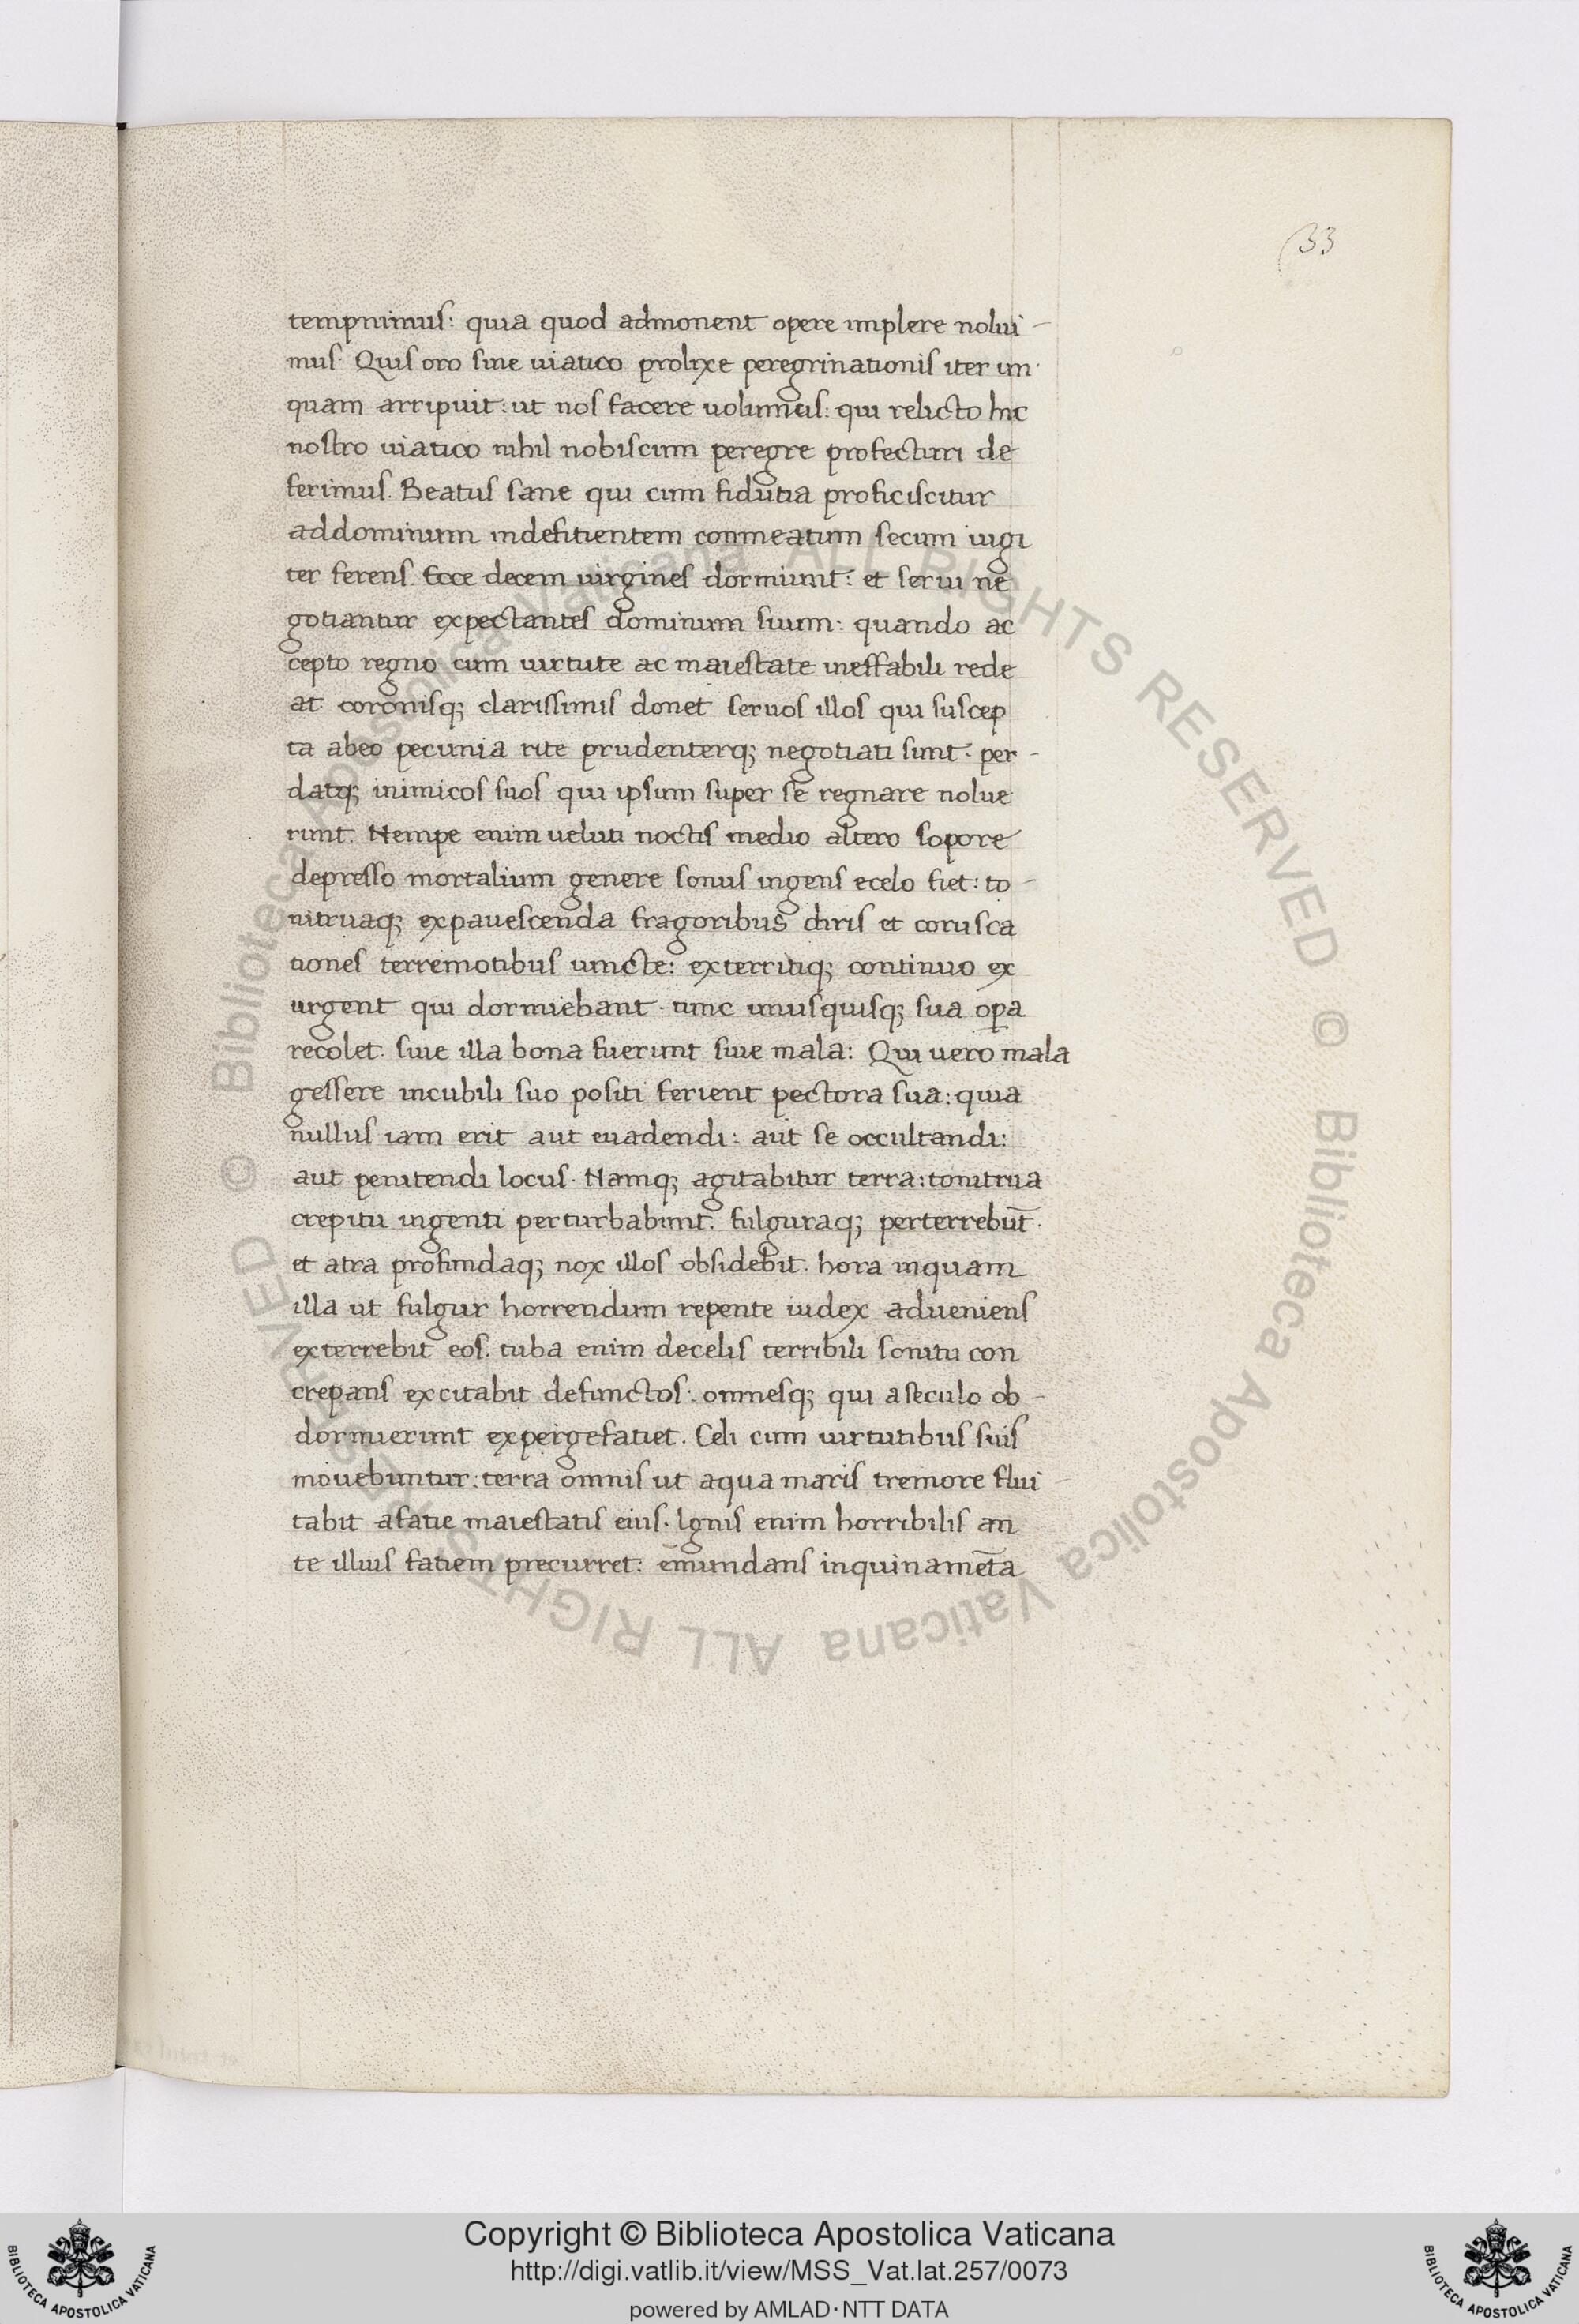 33
tempnimus: quia quod admonent opere implere nolui-
mus· Quis oro sine uiatico prolixe peregrinationis iter un-
quam arripuit: ut nos facere uolumus: qui relicto hic
nostro uiatico nihil nobiscum peregre profecturi de
ferimus. Beatus sane qui cum fidutia proficiscitur
addominum indefitientem conmeatum secum iugi
ter ferens. Ecce decem uirgines dormiunt: et serui ne
gotiantur expectantes dominum suum: quando ac
cepto regno cum uirtute ac maiestate ineffabili rede
at· coronisq; clarissimis donet seruos illos qui suscep
ta abeo pecunia rite prudenterq; negotiati sunt: per-
datq; inimicos suos qui ipsum super se regnare nolue
runt. Nempe enim ueluti noctis medio altero sopore
depresso mortalium genere sonus ingens ecelo fiet: to-
nitruaq; expauescenda fragoribus diris et corusca
tiones terremotibus uincte: exterritiq; continuo ex
urgent qui dormiebant· tunc unusquisq; sua opa
recolet· siue illa bona fuerunt siue mala: Qui uero mala
gessere incubili suo positi ferient pectora sua: quia
nullus iam erit aut euadendi: aut se occultandi:
aut penitendi locus· Namq; agitabitur terra: tonitrua
crepitu ingenti perturbabunt: fulguraq; perterrebūt·
et atra profundaq; nox illos obsidebit· hora inquam
illa ut fulgur horrendum repente iudex adueniens
exterrebit eos. tuba enim decelis terribili sonitu con
crepans excitabit defunctos: omnesq; qui aseculo ob-
dormierunt expergefatiet. Celi cum uirtutibus suis
mouebuntur: terra omnis ut aqua maris tremore flui-
tabit afatie maiestatis eius· Ignis enim horribilis an
te illius fatiem precurret: emundans inquinamēta
© Biblioteca Apostolica Vaticana ALL RIGHTS RESERVED © Biblioteca Apostolica Vaticana ALL RIGHTS RESERVED
Copyright © Biblioteca Apostolica Vaticana
http://digi.vatlib.it/view/MSS_Vat.lat.257/0073
powered by AMLAD·NTT DATA
BIBLIOTECA APOSTOLICA VATICANA
BIBLIOTECA APOSTOLICA VATICANA